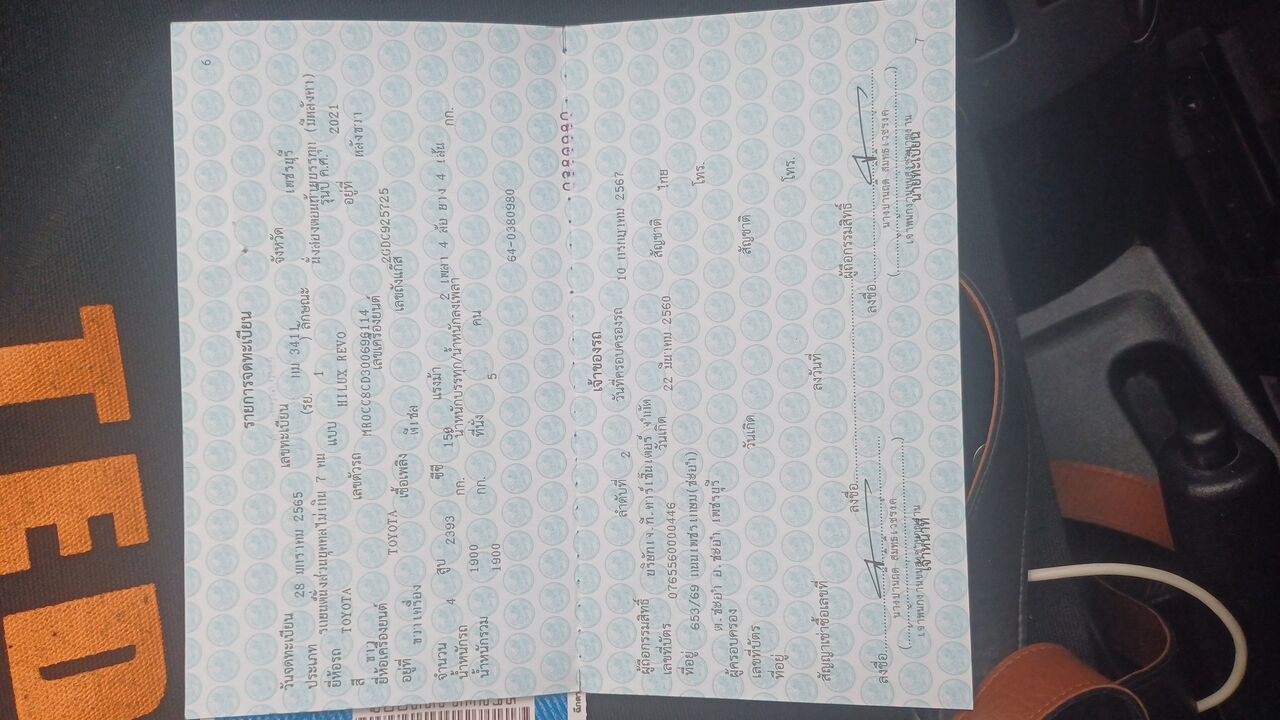 6
รายการจดทะเบียน
วันจดทะเบียน 28 มกราคม 2565 เลขทะเบียน 3411 จังหวัด เพชรบุรี
ประเภท รถยนต์นั่งส่วนบุคคลไม่เกิน 7 คน (รย. 1 ) ลักษณะ นั่งสองตอนท้ายบรรทุก (มีหลังคา)
ยี่ห้อรถ TOYOTA แบบ HILUX REVO รุ่นปี ค.ศ. 2021
สี ขาว เลขตัวรถ MR0CC8CD300696114 อยู่ที่ หลังขวา
ยี่ห้อเครื่องยนต์ TOYOTA เลขเครื่องยนต์ 2GDC925725
อยู่ที่ ขวาเครื่อง เชื้อเพลิง ดีเซล เลขถังแก๊ส
จำนวน 4 สูบ 2393 ซีซี 150 แรงม้า 2 เพลา 4 ล้อ ยาง 4 เส้น
น้ำหนักรถ 1900 กก. น้ำหนักบรรทุก/น้ำหนักลงเพลา กก.
น้ำหนักรวม 1900 กก. ที่นั่ง 5 คน
64-0380980
เจ้าของรถ
ลำดับที่ 2 วันที่ครอบครองรถ 10 กรกฎาคม 2567
ผู้ถือกรรมสิทธิ์ บริษัทเจ.ที.คาร์เซ็นเตอร์ จำกัด
เลขที่บัตร 0765560000446 วันเกิด 22 มีนาคม 2560 สัญชาติ ไทย
ที่อยู่ 653/69 ถนนเพชรเกษม(ชะอำ) โทร.
ต.ชะอำ อ.ชะอำ เพชรบุรี
ผู้ครอบครอง
เลขที่บัตร วันเกิด สัญชาติ
ที่อยู่ โทร.
สัญญาเช่าซื้อเลขที่ ลงวันที่
ลงชื่อ ผู้ถือกรรมสิทธิ์
ลงชื่อ ลงชื่อ
เจ้าหน้าที่ นายทะเบียน
7